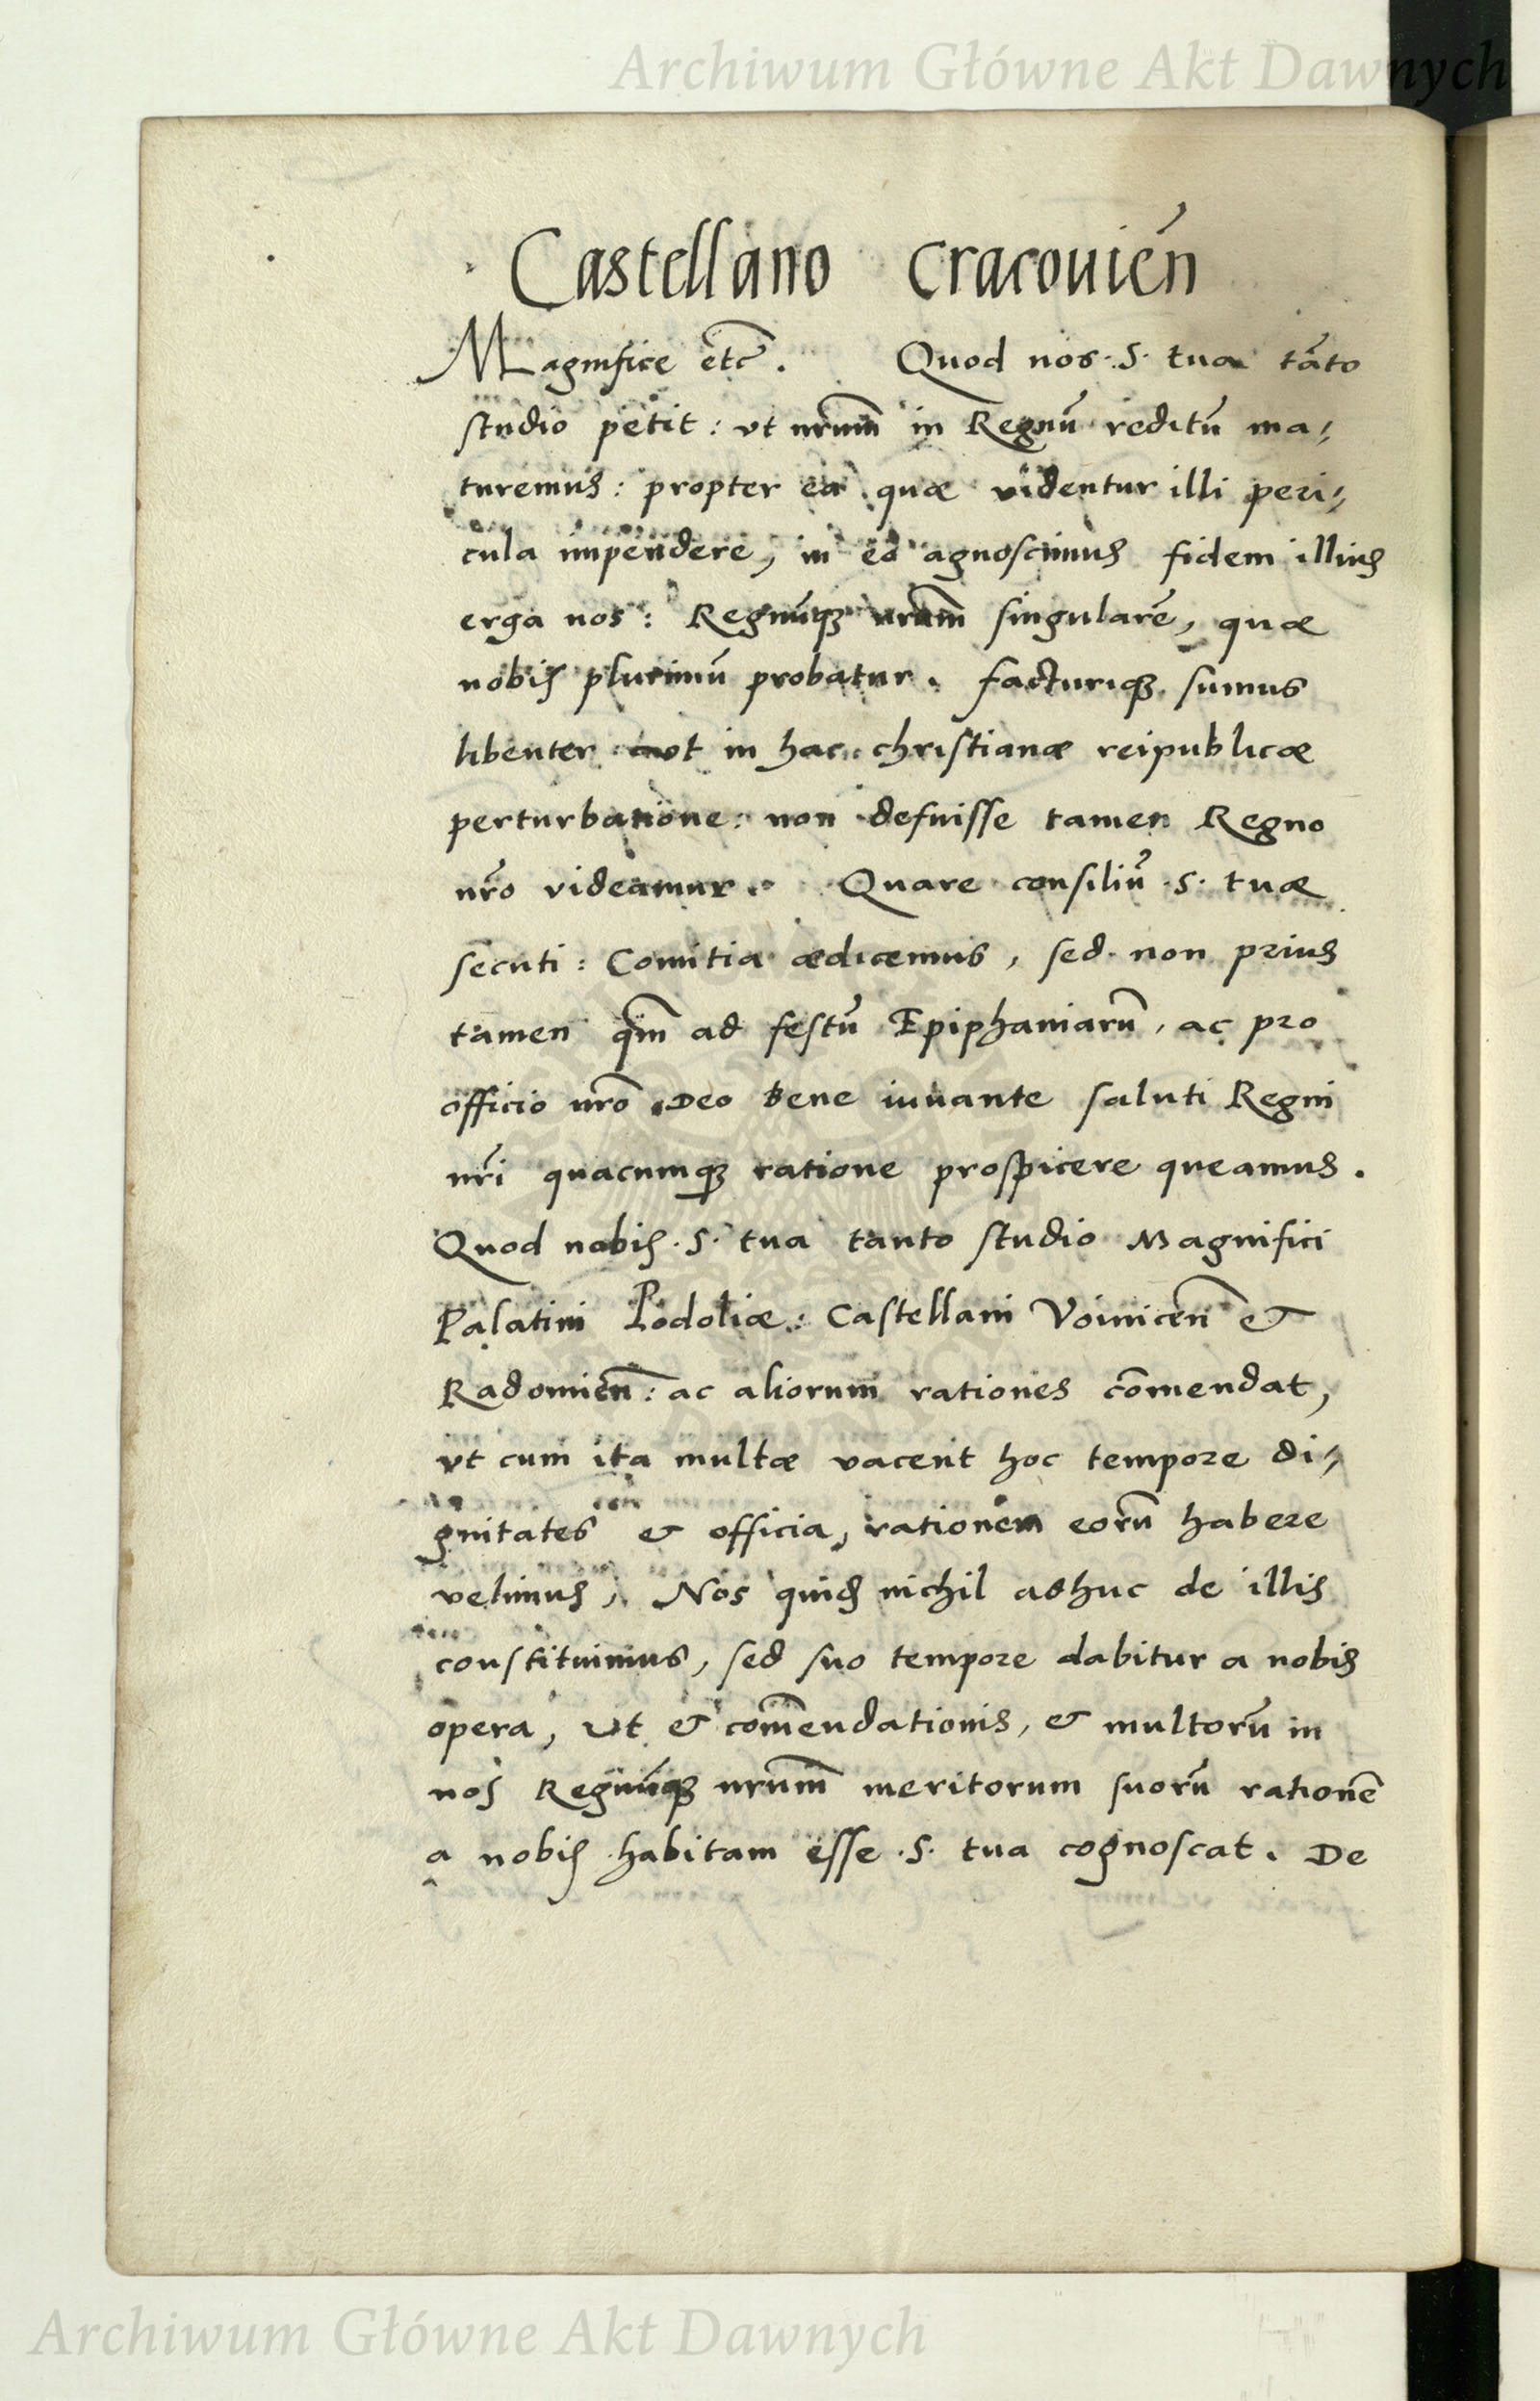 Archiwum Główne Akt Dawnych
Castellano Cracouień
Magnifice etc̃. Quod nos .S. tua tãto
studio petit: vt nrũm in Regnũ reditũ ma,,
turemus: propter ea quæ videntur illi peri,,
cula impendere, in eo agnoscimus fidem illius
erga nos: Regnũq3 nrũm singularẽ, quæ
nobis plurimũ probatur. facturiq3 sumus
libenter vt in hac christianæ reipublicæ
perturbatione: non defuisse tamen Regno
nr̃o videamur. Quare consiliũ .S. tuæ
secuti: Comitia ædicemus, sed non prius
tamen q̃m ad festũ Epiphaniarũ, ac pro
officio nr̃o Deo bene iuuante saluti Regni
nr̃i quacumq3 ratione prospicere queamus.
Quod nobis .S. tua tanto studio Magnifici
Palatini Podoliæ: Castellani Voiniceñ &
Radomieñ: ac aliorum rationes cõmendat,
vt cum ita multæ vacent hoc tempore di,,
gnitates & officia, rationem eorũ habere
velimus, Nos quid3 nichil adhuc de illis
constituimus, sed suo tempore dabitur a nobis
opera, Vt & com̃endationis, & multorũ in
nos Regnũq3 nrũm meritorum suorũ rationẽ
a nobis habitam esse .S. tua cognoscat. De
Archiwum Główne Akt Dawnych